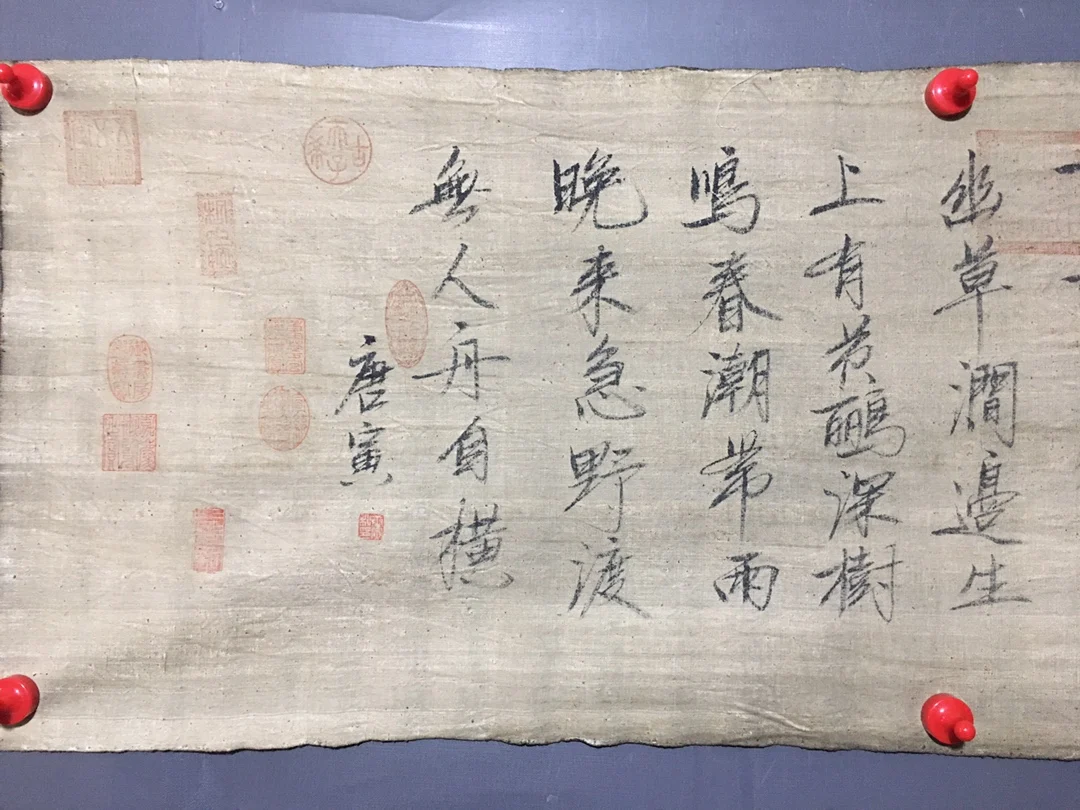 幽草澗邊生
上有黄鸝深樹
鳴春潮帶雨
晚来急野渡
無人舟自横
唐寅